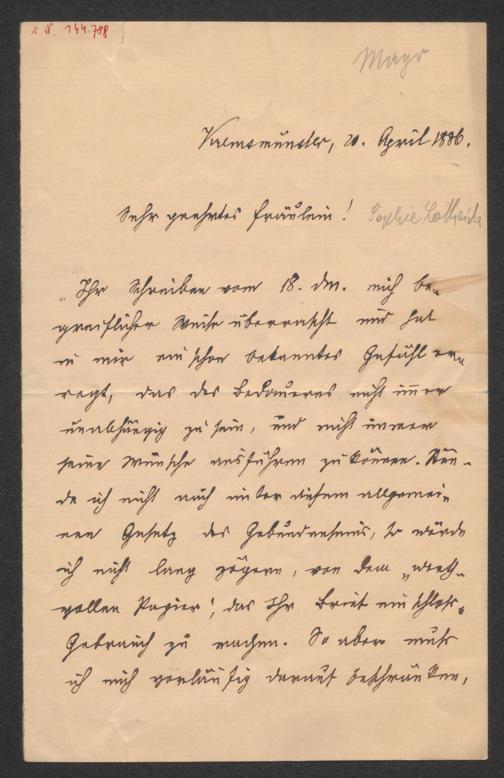 I. N. 144.788
Mayr
Kremsmünster, 20. April 1886.
Sehr geehrtes Fräulein! Sophie Lotheisen
Ihr Schreiben vom 18. dM. mich be-
greiflicher Weise überrascht und hat
in mir ein schon bekanntes Gefühl er-
regt, das des Bedauerns nicht immer
unabhängig zu sein, und nicht immer
seine Wünsche ausführen zu können. Stün-
de ich nicht auch unter diesem allgemei-
nen Gesetz des Gebundenseins, so würde
ich nicht lang zögern, von dem „werth-
vollen Papier", das Ihr Brief einschloss,
Gebrauch zu machen. So aber muß
ich mich vorläufig darauf beschränken,